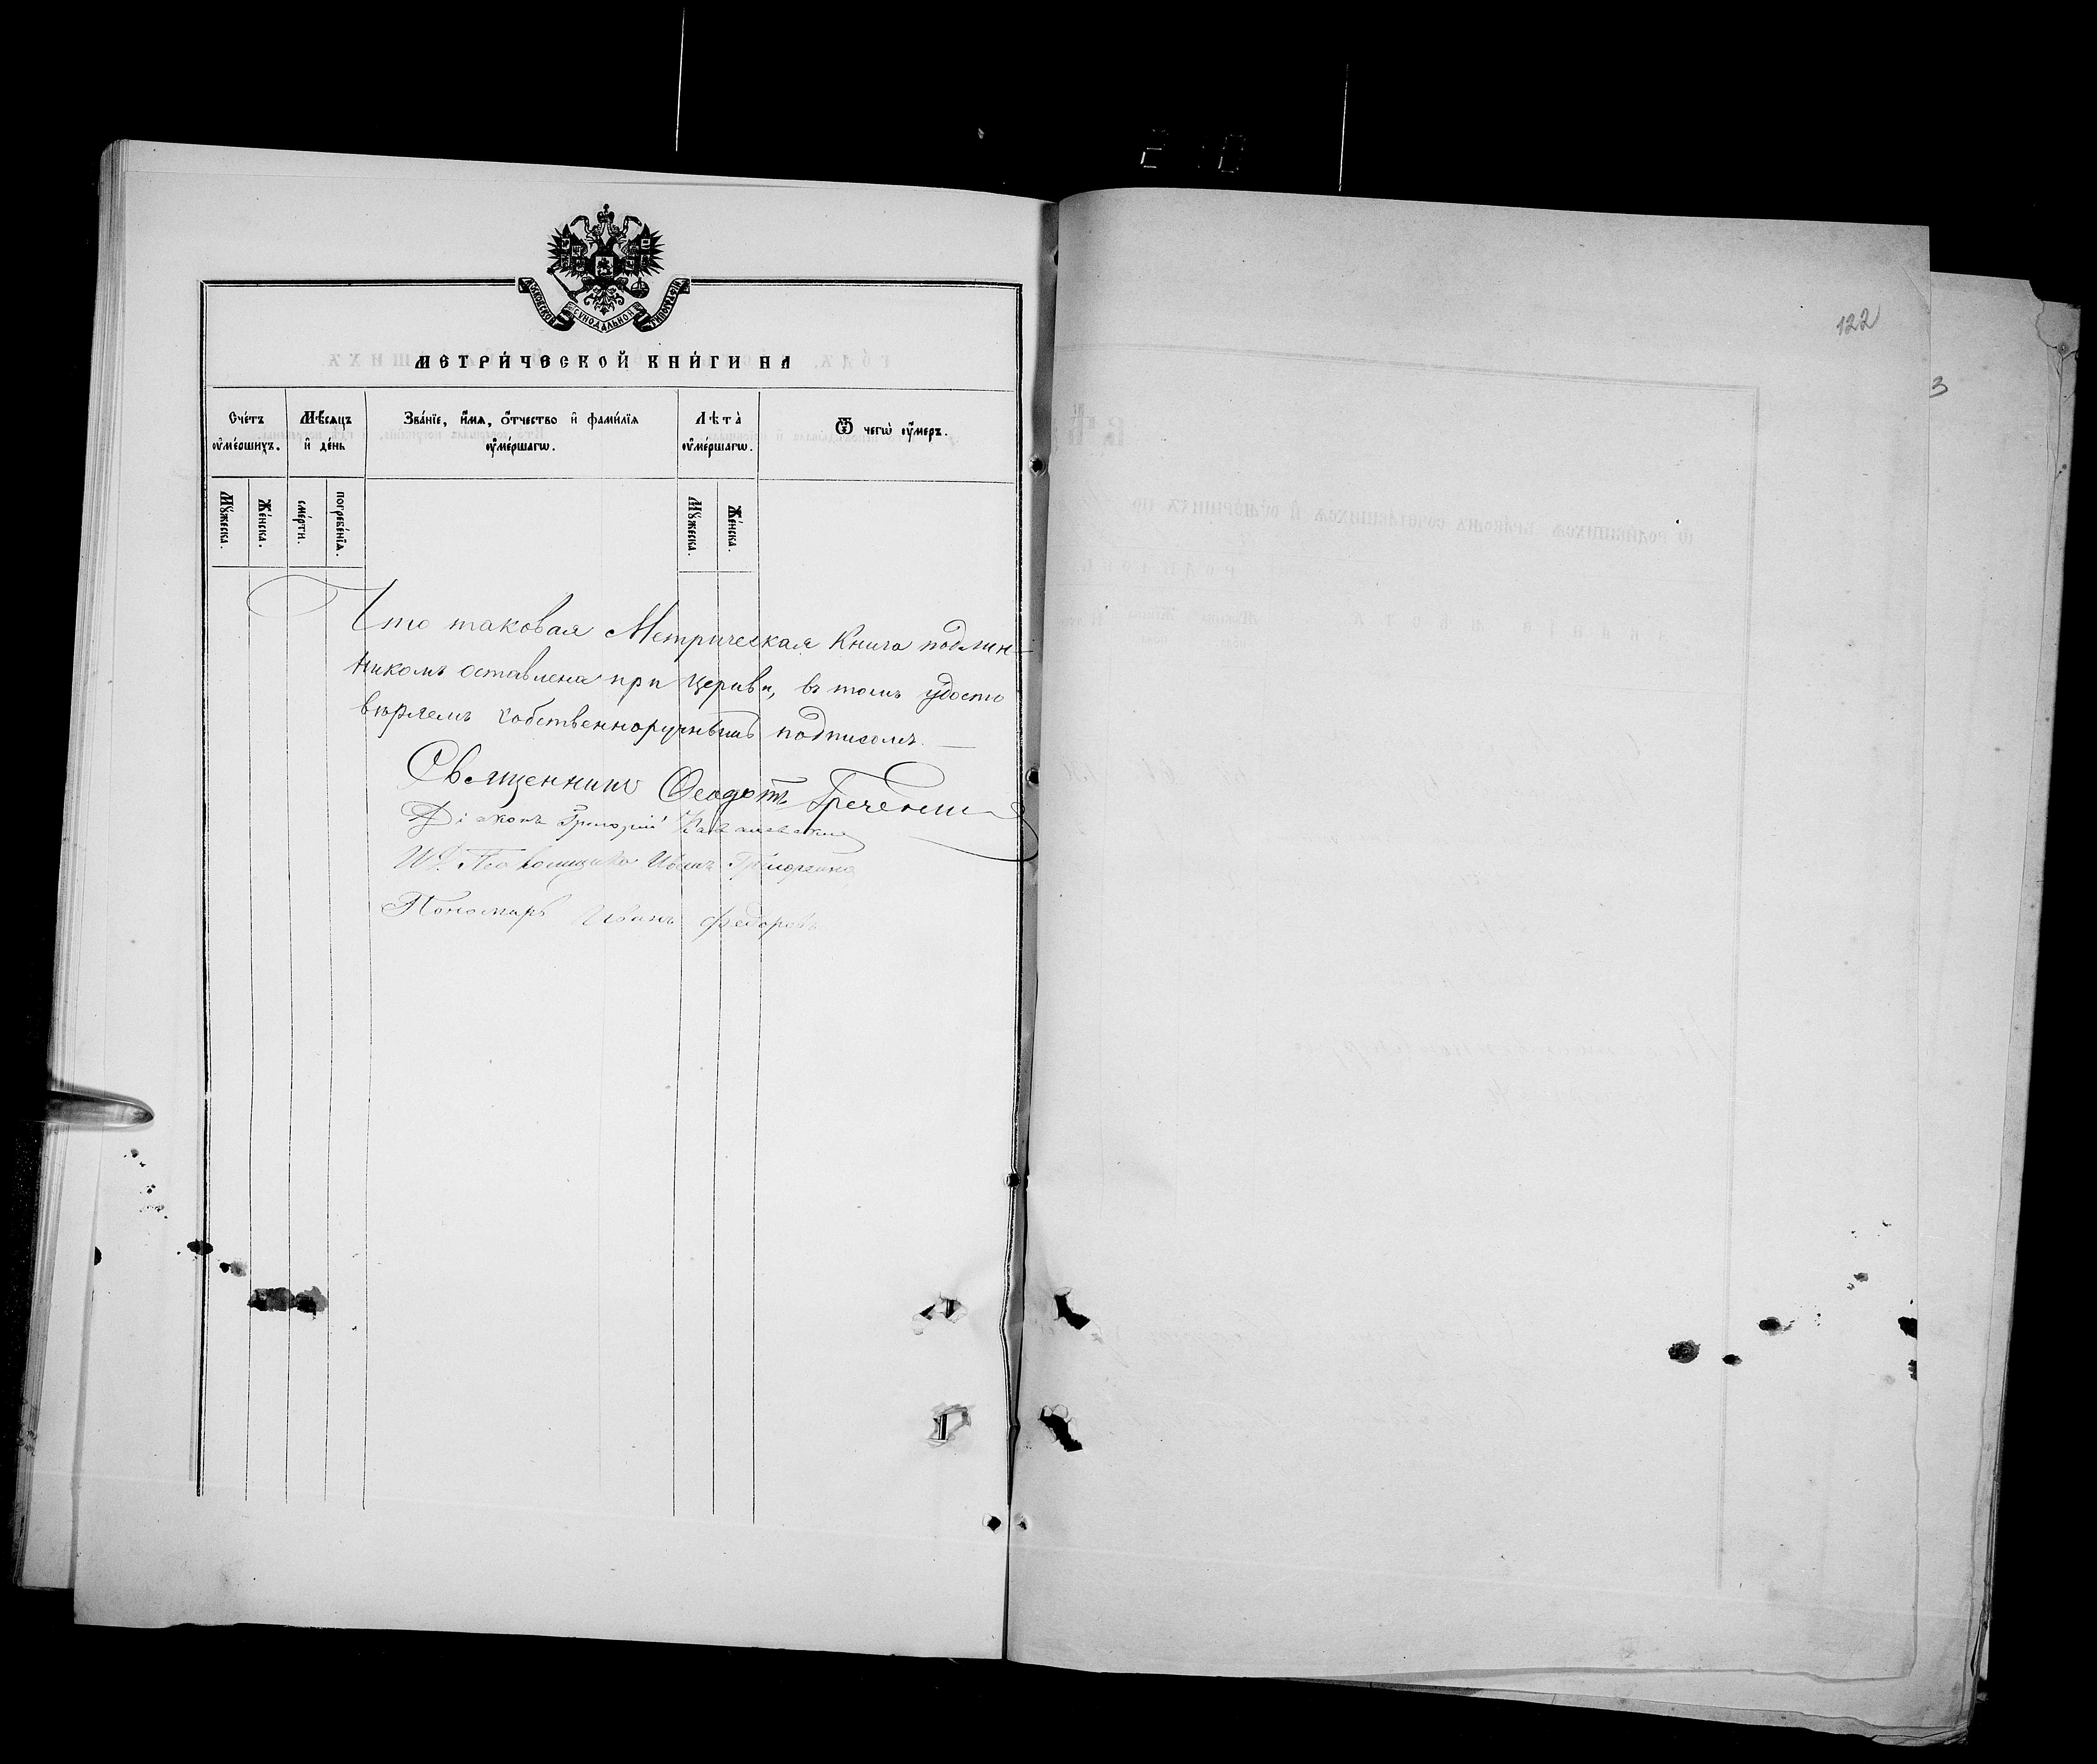 МОСКОВСКОЙ СУНОДАЛЬНОЙ ТИПОГРАФІИ
МЕТРИ́ЧЕСКОЙ КНИ́ГИ НА
Сче́тъ ᲂу҆ме́ршихъ.
Мѣ́сѧцъ и҆ де́нь
Зва́нїе, и҆́мѧ, ѻ҆́тчество и҆ фами́лїѧ ᲂу҆ме́ршагѡ.
Лѣта̀ ᲂу҆ме́ршагѡ.
Ѿ чегѡ̀ ᲂу҆́меръ.
Мꙋ́жеска.
Же́нска.
сме́рти.
погребе́нїѧ.
Мꙋ́жеска.
Же́нска.
Что таковая Метрическая Книга подлин-
никомъ оставлена при церкви, въ томъ удосто
вѣряемъ собственноручнымъ подписомъ. —
Священникъ Ѳеодотъ
Діаконъ Григорій
Иванъ
Пономарь Иванъ Федоровъ
122
3